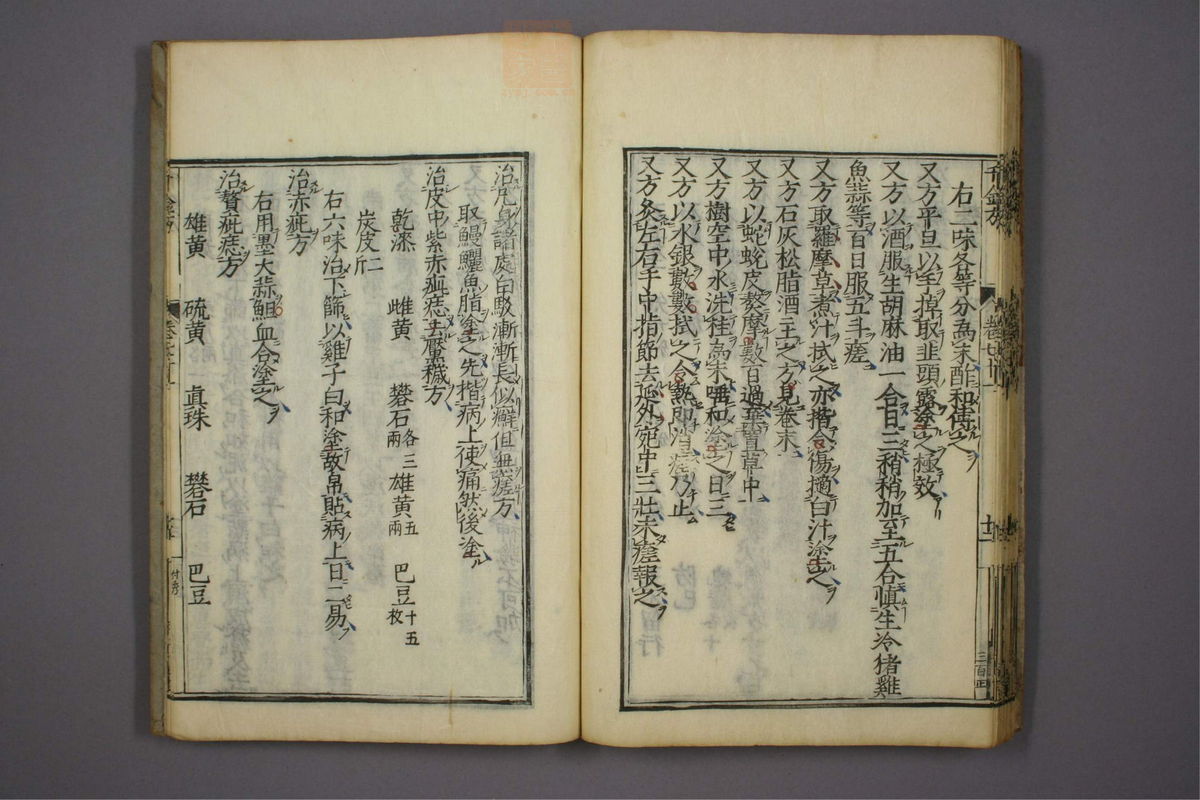 右二味各等分為末酢和傅之
又方平旦以手掉取韭頭露塗之極效
又方以酒服生胡麻油一合日三稍稍加至五合慎生冷猪雞
魚蒜等百日服五斗瘥
又方取羅摩草煮汁拭之亦揩令傷擿白汁塗之
又方石灰松脂酒主之方見卷末
又方以蛇蛻皮熬摩數百過棄置草中
又方樹空中水洗桂為末唾和塗之日三
又方以水銀數數拭之令熱即消瘥乃止
又方灸左右手中指節去延外宛中三壯未瘥報之
治凡身諸處白駁漸漸長似癬但無瘡方
取鰻鱺魚脂塗之先揩病上使痛然後塗
治皮中紫赤疵痣去靨穢方
乾漆 雌黄 礬石各三兩 雄黄五兩 巴豆十五枚
炭皮一斤
右六味治下篩以雞子白和塗故帛貼病上日二易
治赤疵方
右用墨大蒜鱓血合塗之
治贅疵痣方
雄黄 硫黄 真珠 礬石 巴豆
千金方
三百四